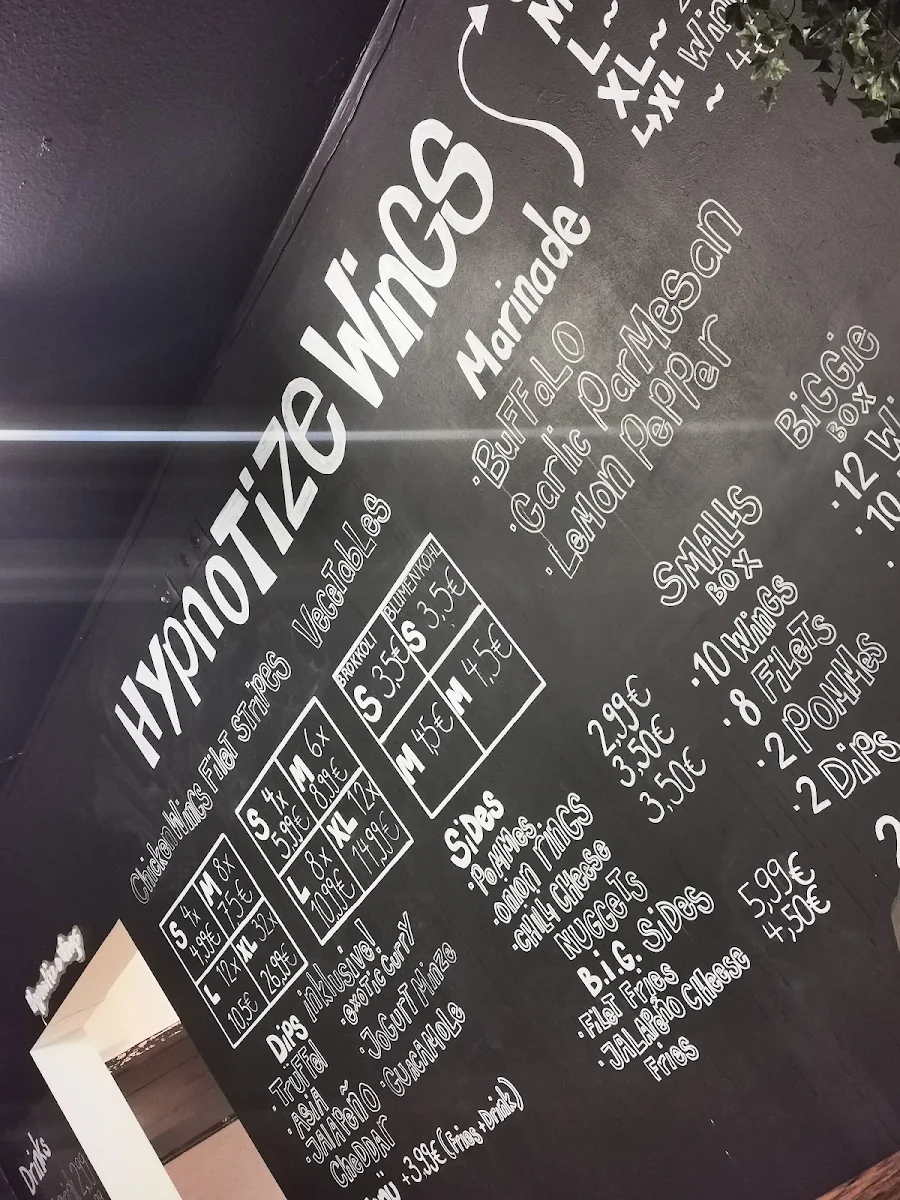 HYPNOTiZE WiNGS
Chicken Wings
S 4x M 8x
4,99€ 7,5€
L 12x XL 32x
10,5€ 26,99€
Filet Stripes
S 4x M 6x
5,99€ 8,99€
L 8x XL 12x
10,99€ 14,99€
Vegetables
BROKKOLI BLUMENKOHL
S 3,5€ S 3,5€
M 4,5€ M 4,5€
Marinade
· Buffalo
· Garlic Parmesan
· Lemon Pepper
M
L ~
XL ~
4XL Win
~ 4x
Dips inklusive!
· Trüffel
· Asia
· Jalapeño
Cheddar
· exotic Curry
· Jogurt Minze
· Guacamole
+3,99€ (Fries + Drink)
Sides
· Pommes 2,99€
· Onion rings 3,50€
· Chili Cheese
Nuggets 3,50€
B.i.G. Sides
· Filet Fries 5,99€
· Jalapeño Cheese
Fries 4,50€
SMALLS
BOX
· 10 Wings
· 8 Filets
· 2 Pommes
· 2 Dips
BiGGiE
BOX
· 12 W
· 10
Drinks